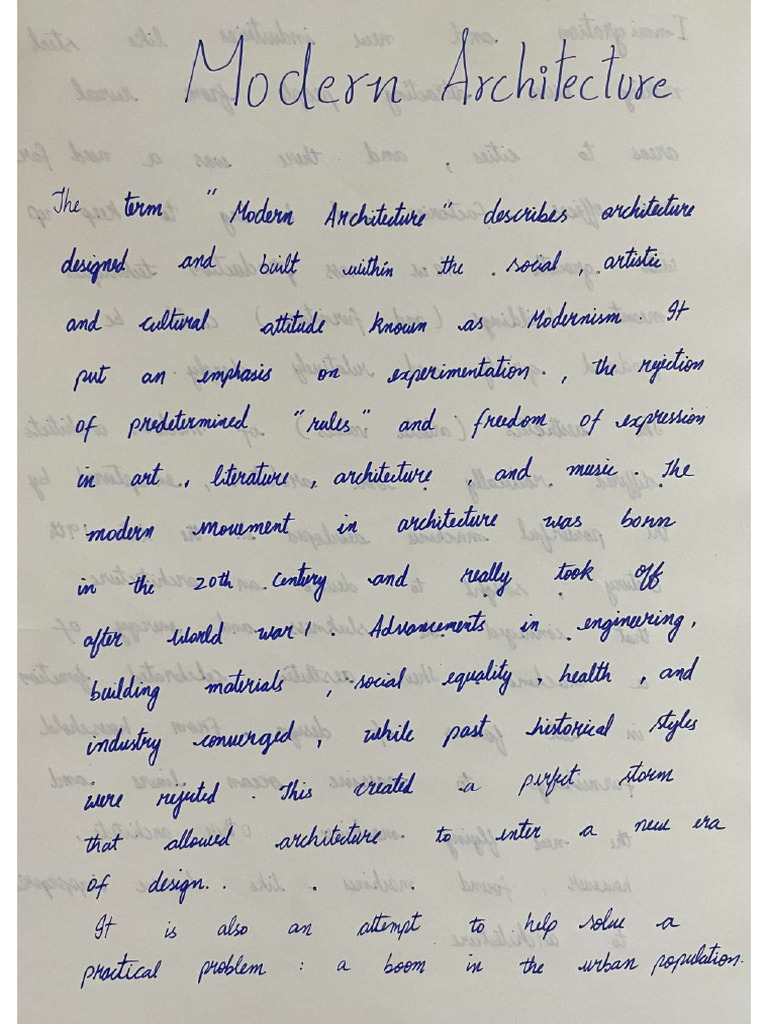 Modern Architecture
The term "Modern Architecture" describes architecture
designed and built within the social, artistic
and cultural attitude known as Modernism. It
put an emphasis on experimentation, the rejection
of predetermined "rules" and freedom of expression
in art, literature, architecture, and music. The
modern movement in architecture was born
in the 20th Century and really took off
after World War 1. Advancements in engineering,
building materials, social equality, health, and
industry converged, while past historical styles
were rejected. This created a perfect storm
that allowed architecture to enter a new era
of design.
It is also an attempt to help solve a
practical problem: a boom in the urban population.